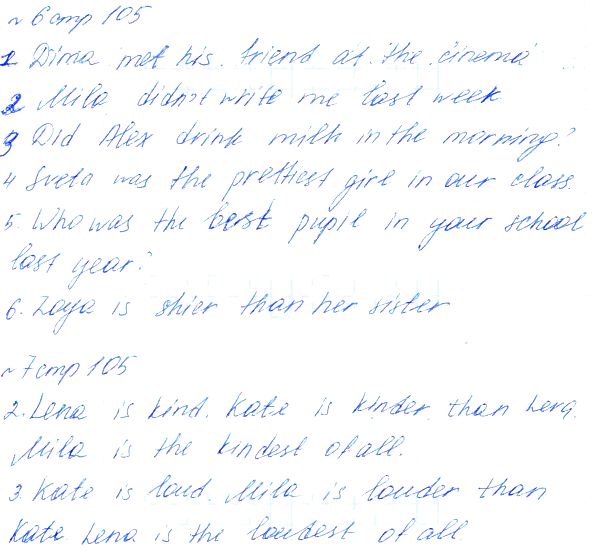 ~ 6 стр 105
1 Dima met his friend at the cinema
2 Mila didn't write me last week
3 Did Alex drink milk in the morning?
4 Sveta was the prettiest girl in our class.
5. Who was the best pupil in your school
last year?
6. Zoya is shier than her sister
~ 7 стр 105
2. Lena is kind. Kate is kinder than Lena.
Mila is the kindest of all.
3. Kate is loud. Mila is louder than
Kate Lena is the loudest of all